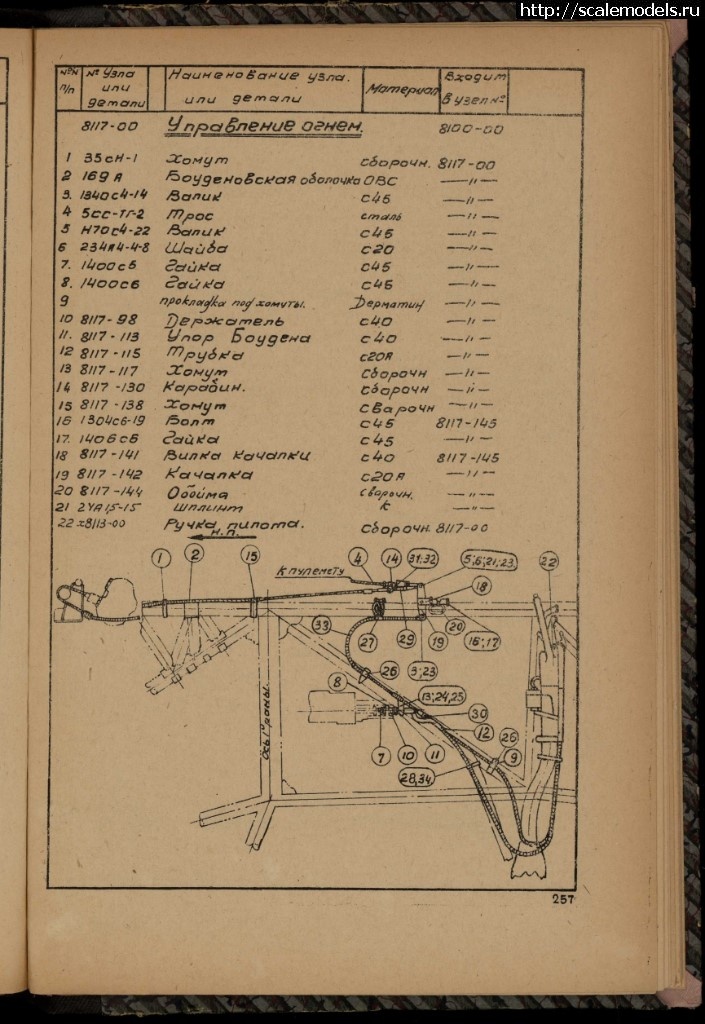 http://scalemodels.ru
№№ п/п | № Узла или детали | Наименование узла. или детали | Материал | Входит в узел №
8117-00 Управление огнем. 8100-00
1 35сн-1 Хомут сборочн. 8117-00
2 169 А Боуденовская оболочка ОВС —〃—
3. 1340с4-14 Валик с45 —〃—
4 5сс-тг-2 Трос сталь —〃—
5 Н70с4-22 Валик с45 —〃—
6 234А4-4-8 Шайба с20 —〃—
7. 1400с5 Гайка с45 —〃—
8. 1400с6 Гайка с45 —〃—
9 прокладка под хомуты. Дерматин —〃—
10 8117-98 Держатель с40 —〃—
11. 8117-113 Упор Боудена с40 —〃—
12 8117-115 Трубка с20А —〃—
13 8117-117 Хомут сборочн —〃—
14 8117-130 Карабин. сборочн —〃—
15 8117-138 Хомут сварочн —〃—
16 1304с6-19 Болт с45 8117-145
17. 1406с6 Гайка с45 —〃—
18 8117-141 Вилка качалки с40 8117-145
19 8117-142 Качалка с20А —〃—
20 8117-144 Обойма сварочн. —〃—
21 2УА1,5-15 Шплинт К —〃—
22 х8113-00 Ручка пилота. сборочн. 8117-00
н.п.
1 2 15 К пулемету 4 14 31:32 5;6;21;23 22
18
33 27 29 19 20 16;17
26 3;23
8 13;24,25
30
Ось 1й рамы.
12 26
7 10 11 9
28,34,
257